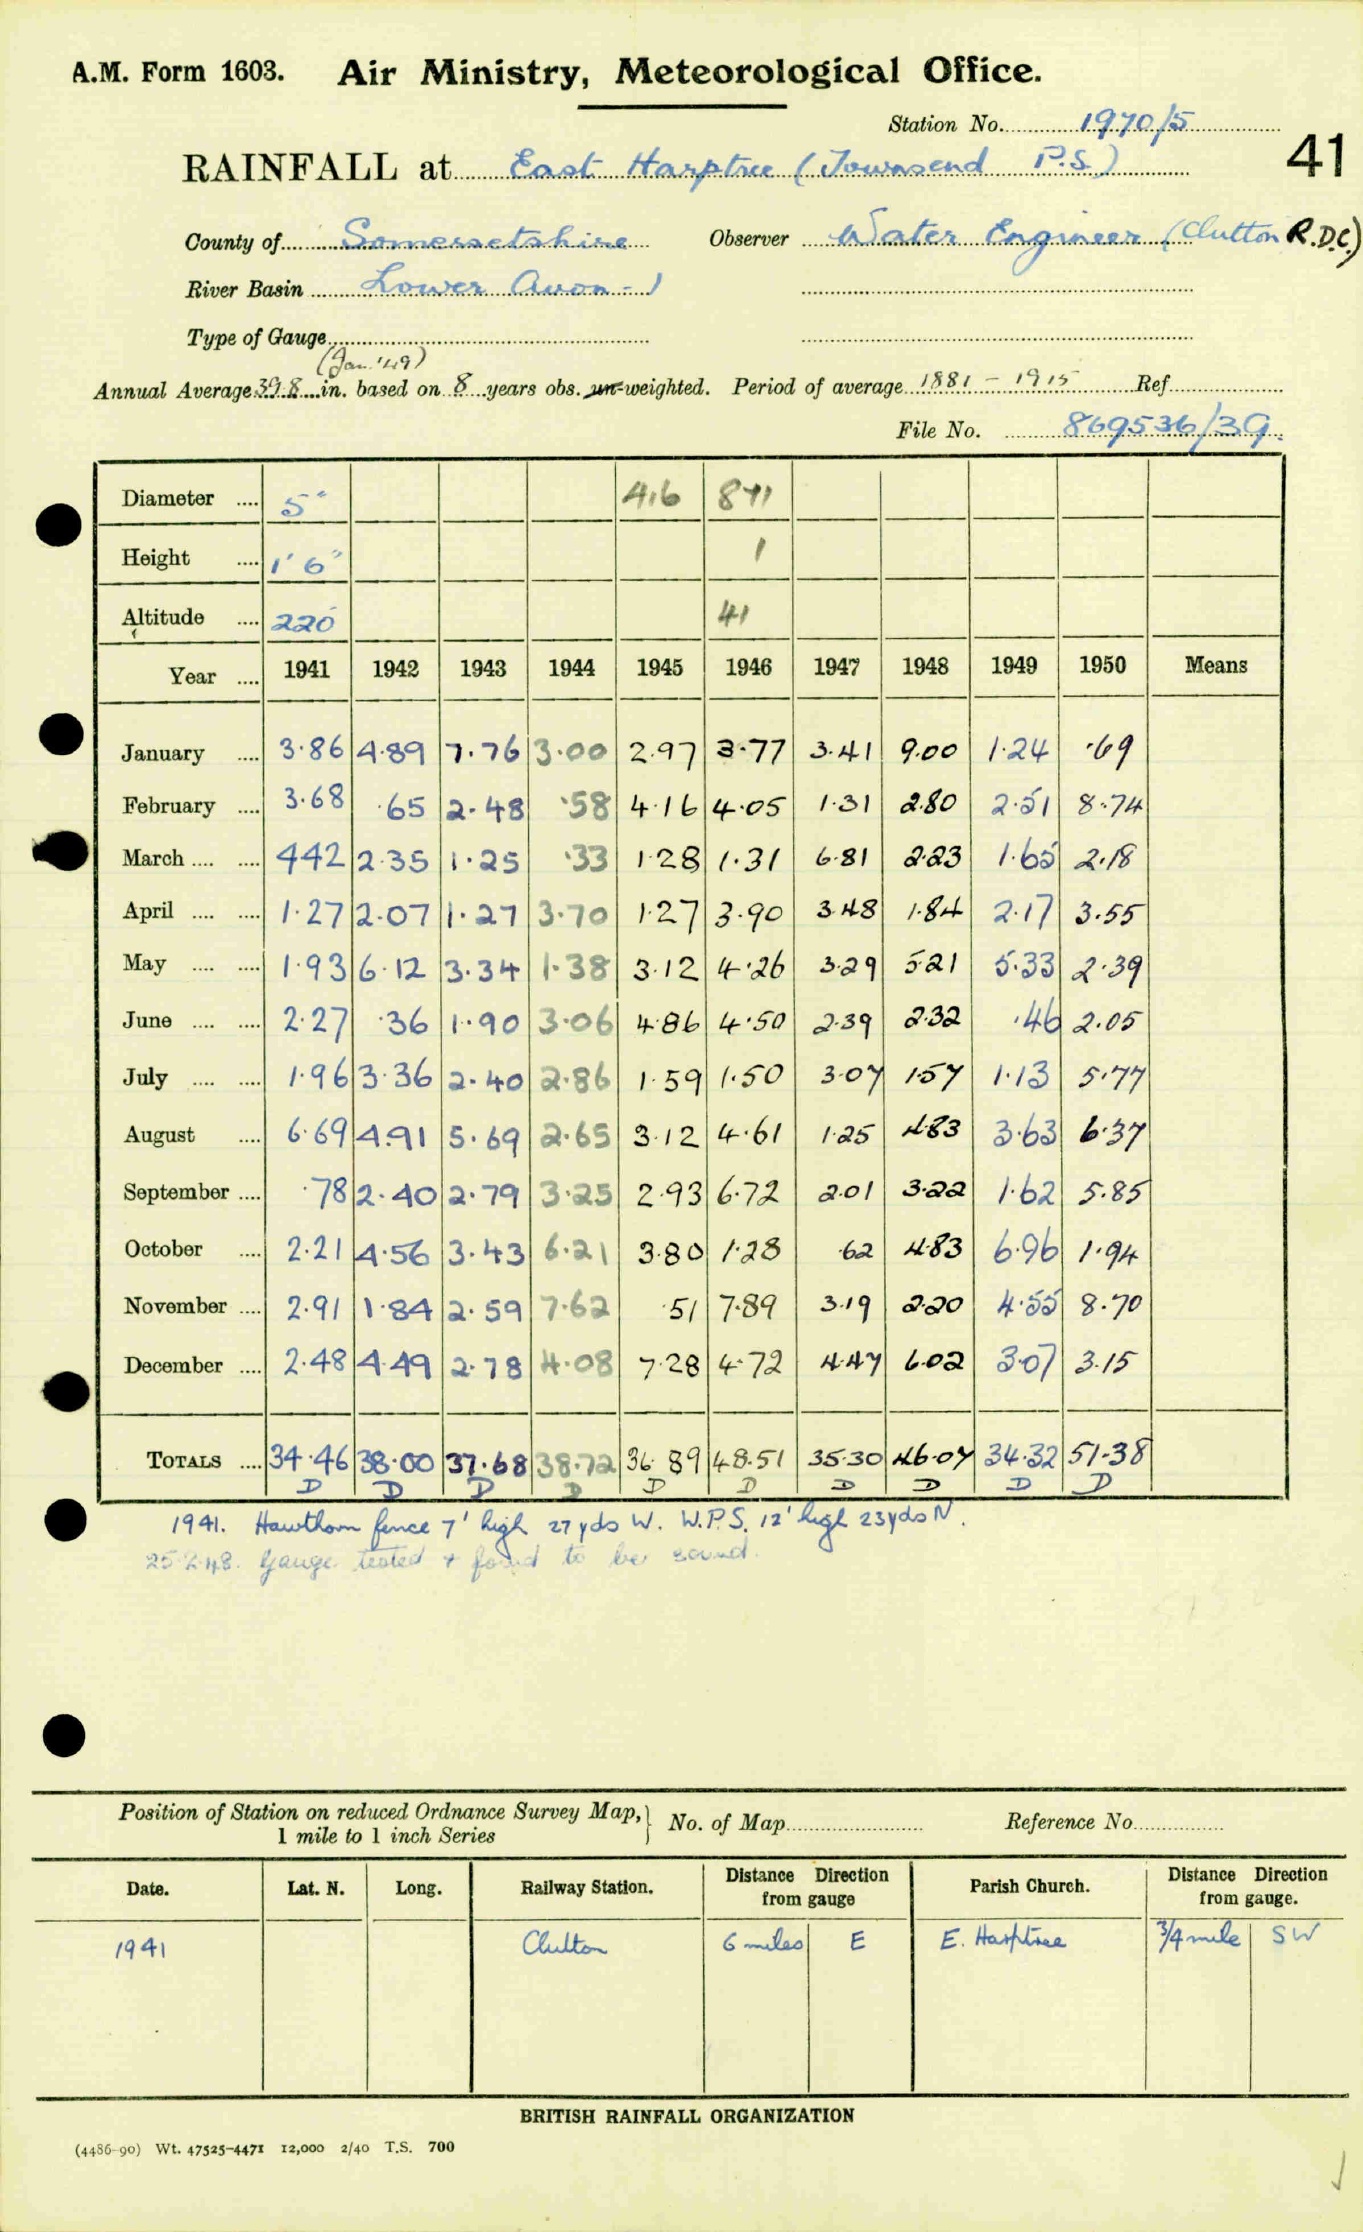 A.M. Form 1603. Air Ministry, Meteorological Office.
Station No. 1970/5
41
RAINFALL at East Harptree (Townsend P.S.)
County of Somersetshire Observer Water Engineer (Clutton R.D.C.)
River Basin Lower Avon - 1
Type of Gauge
(Jan. '49)
Annual Average 39.8 in. based on 8 years obs. un-weighted. Period of average 1881 - 1915 Ref
File No. 869536/39.
Diameter .... 5" 416 871
Height .... 1' 6" 1
Altitude .... 220' 41
Year .... 1941 1942 1943 1944 1945 1946 1947 1948 1949 1950 Means
January .... 3.86 4.89 7.76 3.00 2.97 3.77 3.41 9.00 1.24 .69
February .... 3.68 .65 2.48 .58 4.16 4.05 1.31 2.80 2.51 8.74
March .... .... 442 2.35 1.25 .33 1.28 1.31 6.81 2.23 1.65 2.18
April .... .... 1.27 2.07 1.27 3.70 1.27 3.90 3.48 1.84 2.17 3.55
May .... .... 1.93 6.12 3.34 1.38 3.12 4.26 3.29 5.21 5.33 2.39
June .... .... 2.27 .36 1.90 3.06 4.86 4.50 2.39 2.32 .46 2.05
July .... .... 1.96 3.36 2.40 2.86 1.59 1.50 3.07 1.57 1.13 5.77
August .... 6.69 4.91 5.69 2.65 3.12 4.61 1.25 4.83 3.63 6.37
September .... .78 2.40 2.79 3.25 2.93 6.72 2.01 3.22 1.62 5.85
October .... 2.21 4.56 3.43 6.21 3.80 1.28 .62 4.83 6.96 1.94
November .... 2.91 1.84 2.59 7.62 .51 7.89 3.19 2.20 4.55 8.70
December .... 2.48 4.49 2.78 4.08 7.28 4.72 4.47 6.02 3.07 3.15
TOTALS .... 34.46 38.00 37.68 38.72 36.89 48.51 35.30 46.07 34.32 51.38
D D D D D D D D D D
1941. Hawthorn fence 7' high 27 yds W. W.P.S. 12' high 23 yds N.
25.2.48. Gauge tested & found to be sound.
Position of Station on reduced Ordnance Survey Map, } No. of Map Reference No
1 mile to 1 inch Series
Date. Lat. N. Long. Railway Station. Distance Direction from gauge Parish Church. Distance Direction from gauge.
1941 Clutton 6 miles E E. Harptree 3/4 mile SW
BRITISH RAINFALL ORGANIZATION
(4486-90) Wt. 47525-4471 12,000 2/40 T.S. 700